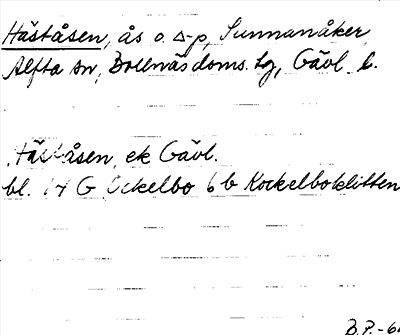 Häståsen, ås o. ∆-p, Sunnanåker
Alfta sn, Bollnäs doms. tg, Gävl. l.
Häståsen, ek Gävl.
bl. 14 G Ockelbo 6 b Kockelboklitten
B.P.-6